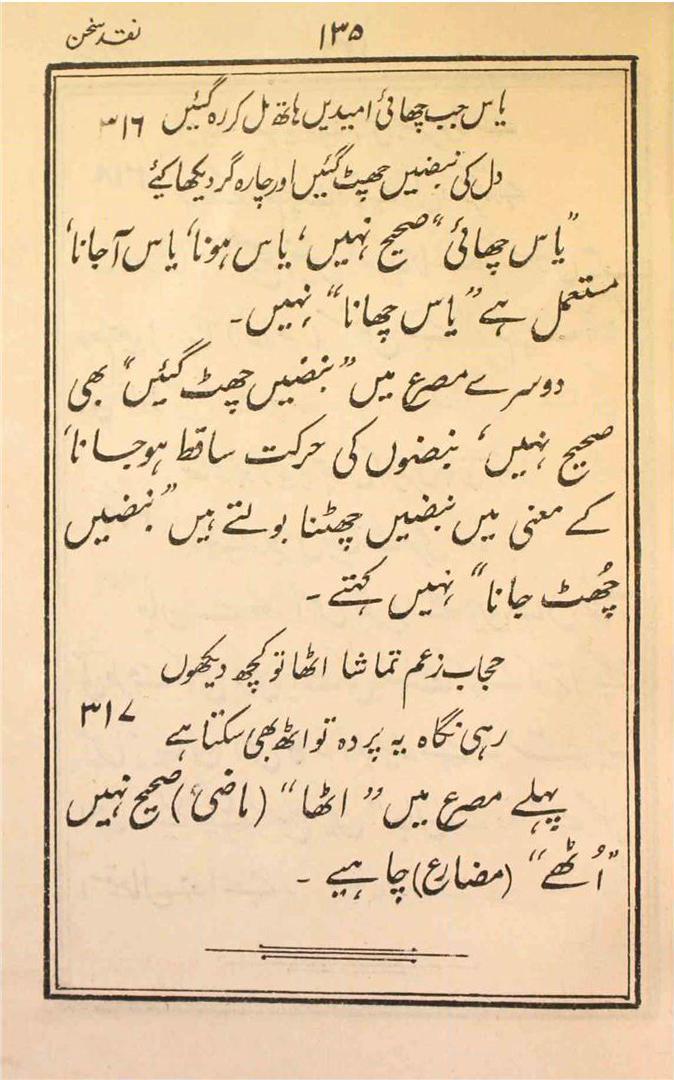 نقد سخن
۱۳۵
یاس جب چھائی امیدیں ہاتھ مل کر رہ گئیں ۳۱۶
دل کی نبضیں چھٹ گئیں اور چارہ گر دیکھا کیے
”یاس چھائی“ صحیح نہیں، یاس ہونا، یاس آجانا،
مستعمل ہے ”یاس چھانا“ نہیں۔
دوسرے مصرع میں ”نبضیں چھٹ گئیں“ بھی
صحیح نہیں، نبضوں کی حرکت ساقط ہوجانا،
کے معنی میں نبضیں چھٹنا بولتے ہیں ”نبضیں
چُھٹ جانا“ نہیں کہتے۔
حجاب زعم تماشا اٹھا تو کچھ دیکھوں
رہی نگاہ یہ پردہ تو اٹھ بھی سکتا ہے ۳۱۷
پہلے مصرع میں ”اٹھا“ (ماضی) صحیح نہیں
”اُٹھے“ (مضارع) چاہیے۔